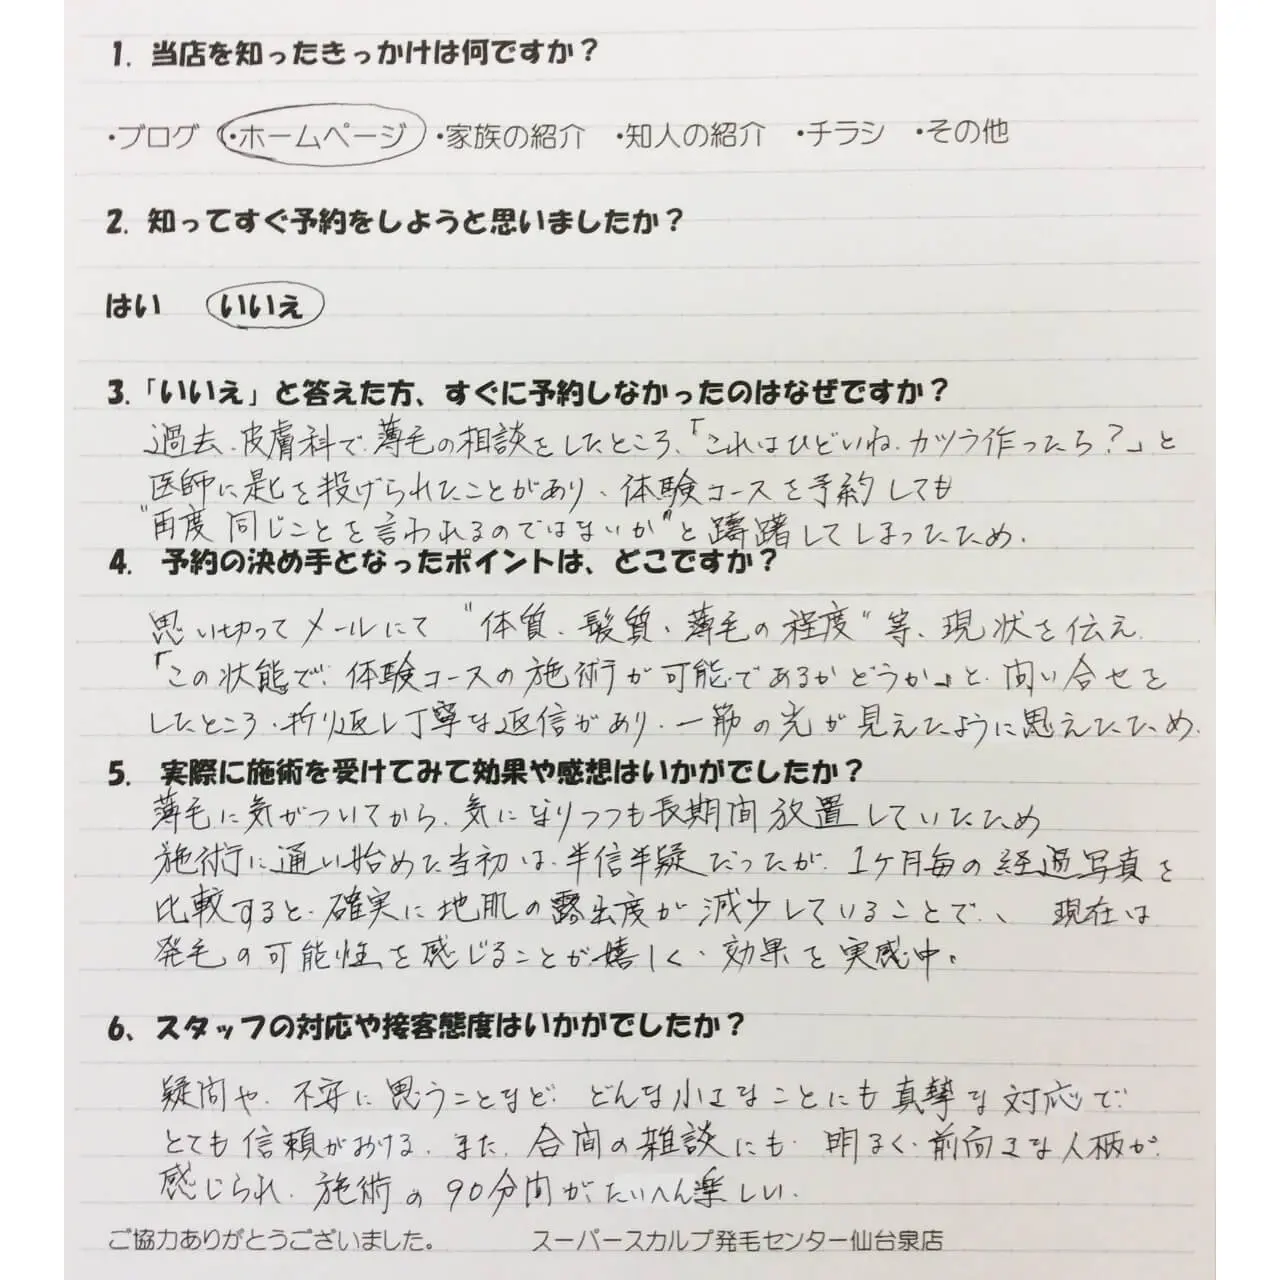 1. 当店を知ったきっかけは何ですか？
・ブログ ・ホームページ ・家族の紹介 ・知人の紹介 ・チラシ ・その他
2. 知ってすぐ予約をしようと思いましたか？
はい いいえ
3.「いいえ」と答えた方、すぐに予約しなかったのはなぜですか？
過去、皮膚科で、薄毛の相談をしたところ、「これはひどいね、カツラ作ったら？」と
医師に匙を投げられたことがあり、体験コースを予約しても
"再度 同じことを言われるのではないか"と躊躇してしまったため。
4. 予約の決め手となったポイントは、どこですか？
思い切ってメールにて "体質、髪質、薄毛の程度"等、現状を伝え、
「この状態で、体験コースの施術が可能であるかどうか」と、問い合せを
したところ、折り返し丁寧な返信があり、一筋の光が見えたように思えたため。
5. 実際に施術を受けてみて効果や感想はいかがでしたか？
薄毛に気がついてから、気になりつつも長期間放置していたため
施術に通い始めた当初は、半信半疑だったが、1ヶ月毎の経過写真を
比較すると、確実に地肌の露出度が減少していることで、、現在は
発毛の可能性を感じることが嬉しく、効果を実感中。
6、スタッフの対応や接客態度はいかがでしたか？
疑問や、不安に思うことなど、どんな小さなことにも真摯な対応で、
とても信頼がおける。また、合間の雑談にも、明るく、前向きな人柄が、
感じられ、施術の90分間がたいへん楽しい。
ご協力ありがとうございました。 スーパースカルプ発毛センター仙台泉店